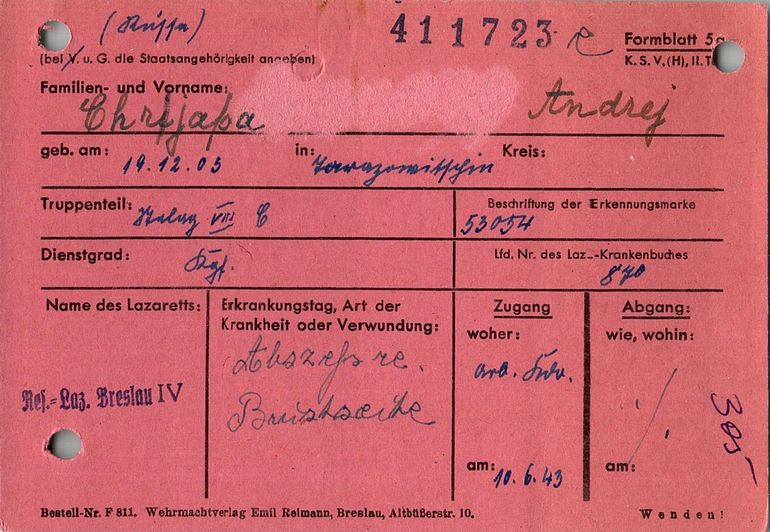 (Russe) 411723
Formblatt 5a
(bei V. u. G. die Staatsangehörigkeit angeben) K. S. V. (H), II. T
Familien- und Vorname:
Chrtjapa Andrej
geb. am: 19.12.05 in: Tarazowitschin Kreis:
Truppenteil: Stalag VIII C
Beschriftung der Erkennungsmarke
53054
Dienstgrad: Kgf.
Lfd. Nr. des Laz.-Krankenbuches
870
Name des Lazaretts:
Res.-Laz. Breslau IV
Erkrankungstag, Art der
Krankheit oder Verwundung:
Abszess re.
Brustseite
Zugang
woher:
arb. Kdo.
am: 10.6.43
Abgang:
wie, wohin:
am:
305
Bestell-Nr. F 811. Wehrmachtverlag Emil Reimann, Breslau, Altbüßerstr. 10. Wenden!